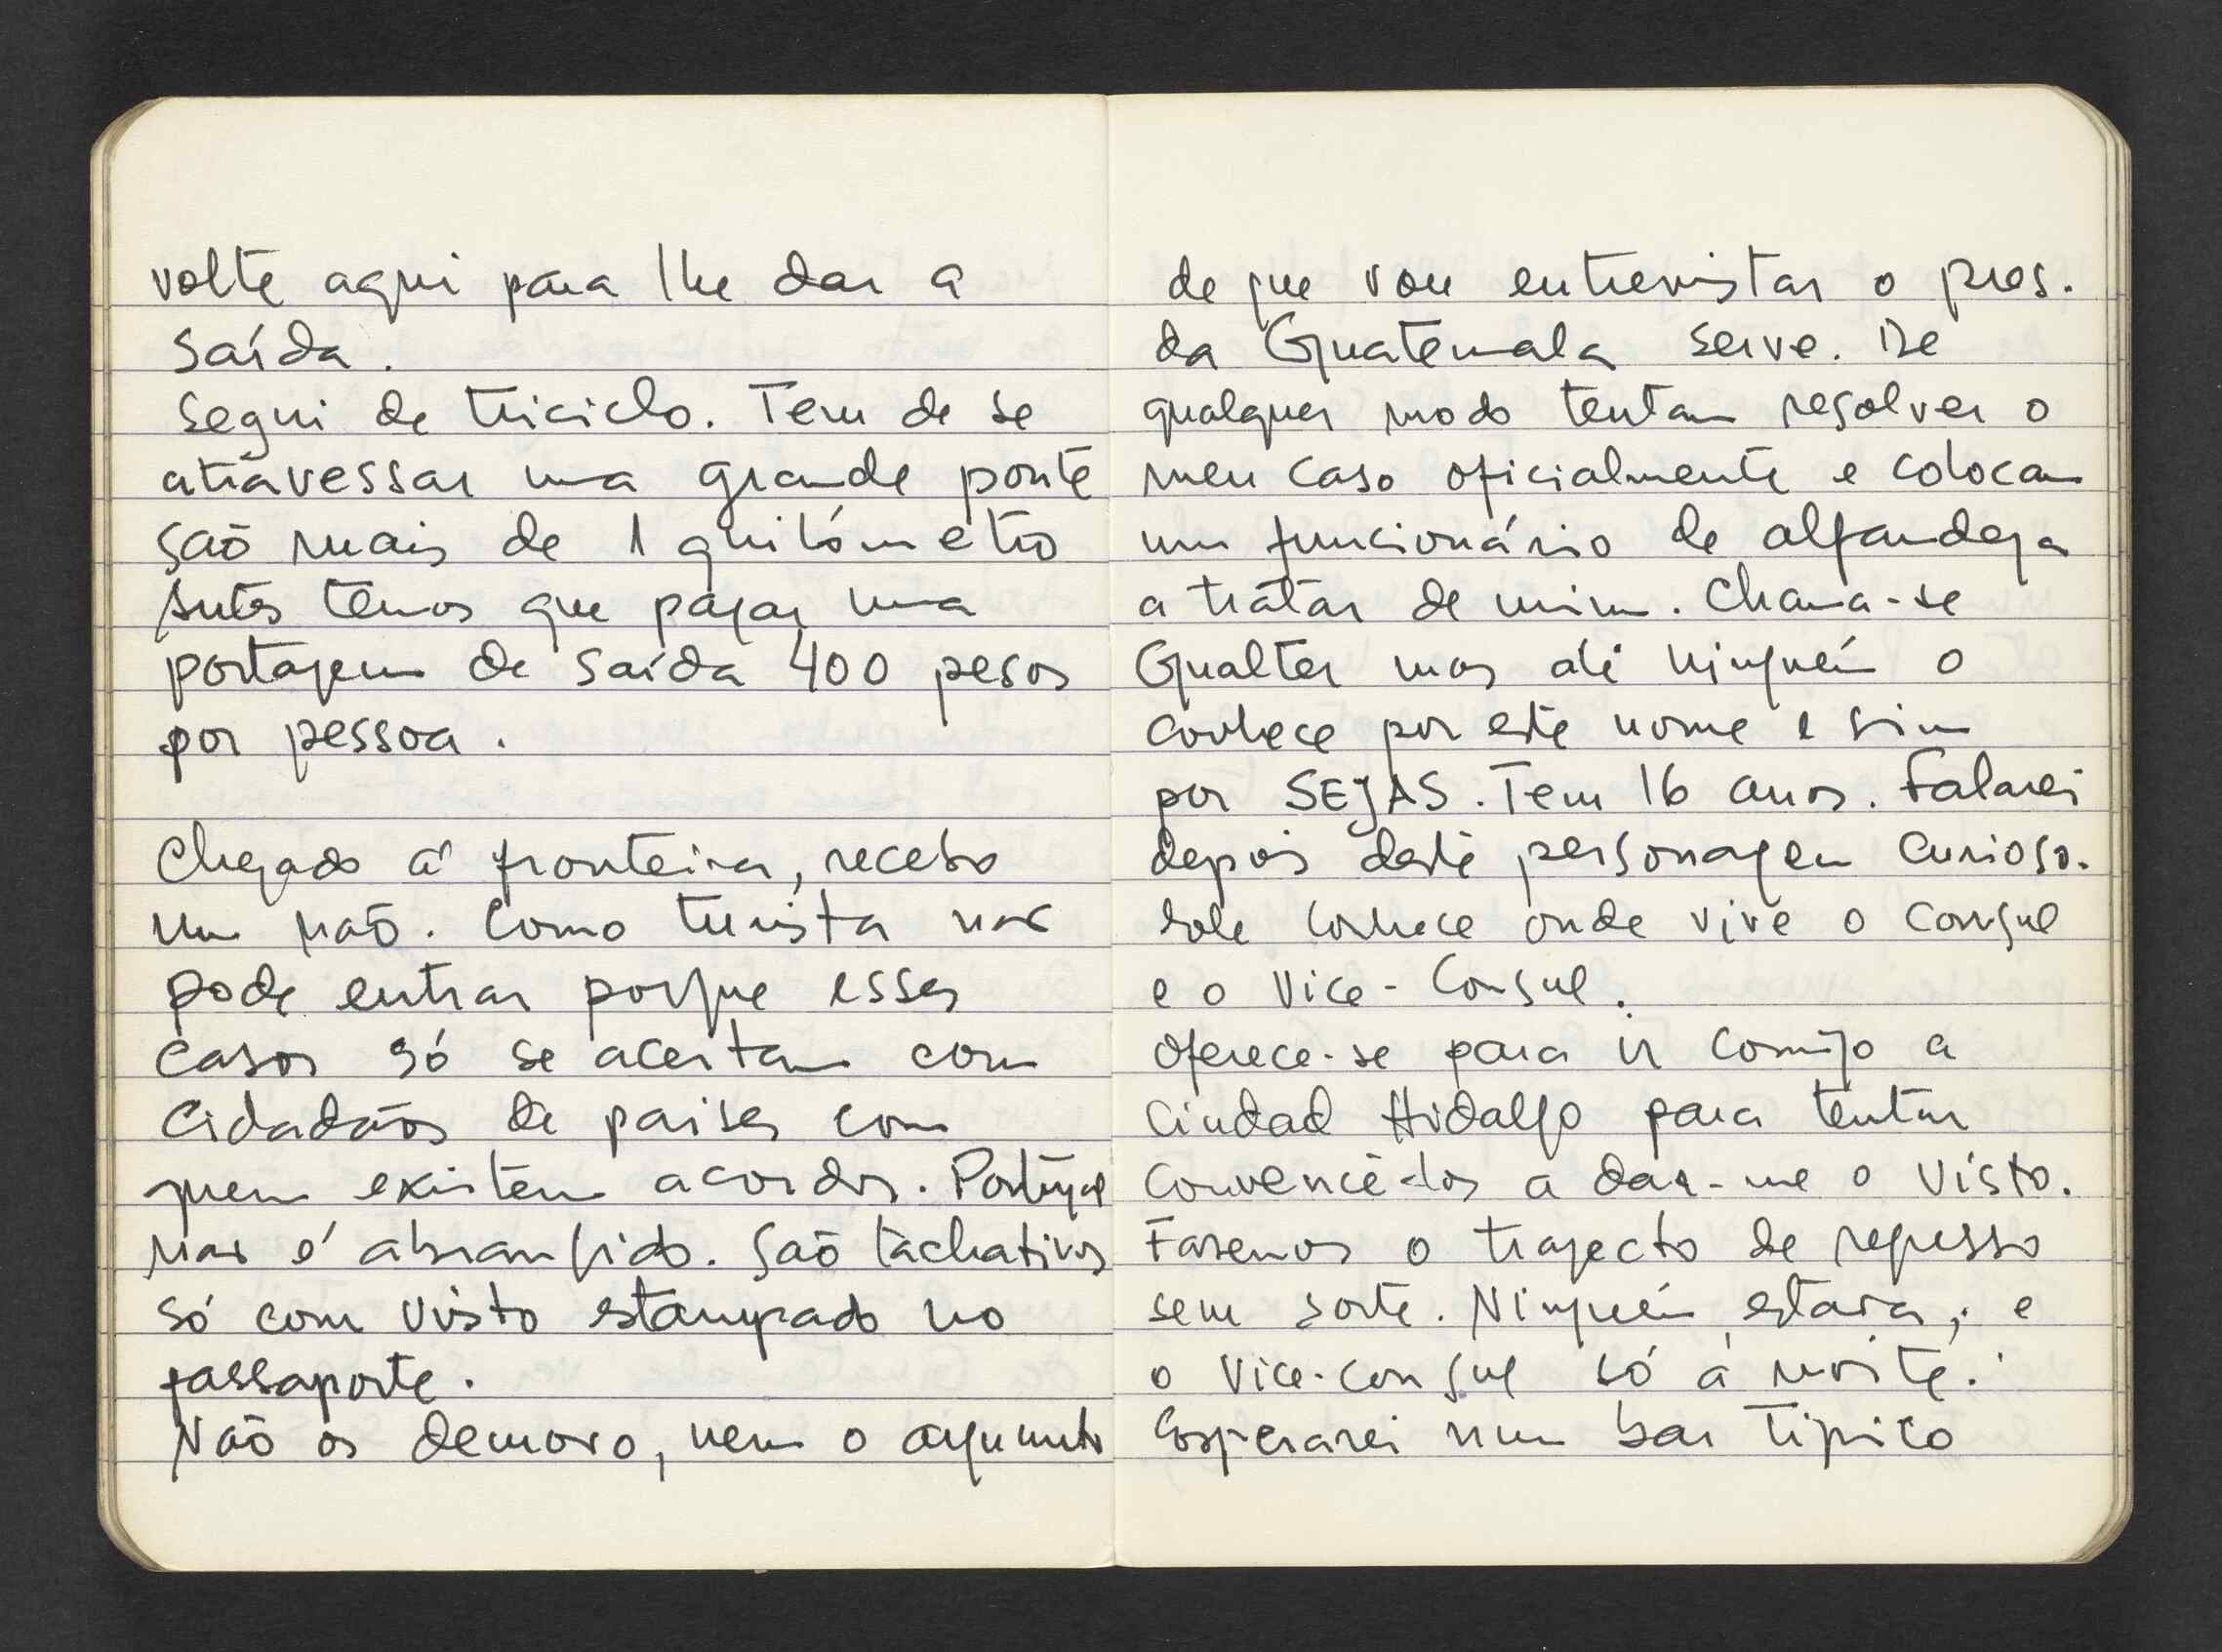 volte aqui para lhe dar a
saída.
segui de triciclo. Tem de se
atravessar uma grande ponte
são mais de 1 quilómetro
Antes temos que pagar uma
portagem de saída 400 pesos
por pessoa.
Chegado á fronteira, recebo
um não. Como turista não
pode entrar porque esses
casos só se acertam com
cidadãos de paises com
quem existem acordos. Portugal
não é abrangido. São tachativos
só com visto estampado no
passaporte.
Não os demovo, nem o argumento
de que vou entrevistar o pres.
da Guatemala serve. De
qualquer modo tentam resolver o
meu caso oficialmente e colocam
um funcionário de alfandega
a tratar de mim. Chama-se
Gualter mas ali ninguém o
conhece por este nome e sim
por SEJAS. Tem 16 anos. Falarei
depois deste personagem curioso.
Ele conhece onde vive o consul
e o Vice-Consul.
Oferece-se para ir comigo a
Ciudad Hidalgo para tentar
convencê-los a dar-me o visto.
Fazemos o trajecto de regresso
sem sorte. Ninguém estava, e
o Vice-consul só á noite.
Esperarei num bar tipico